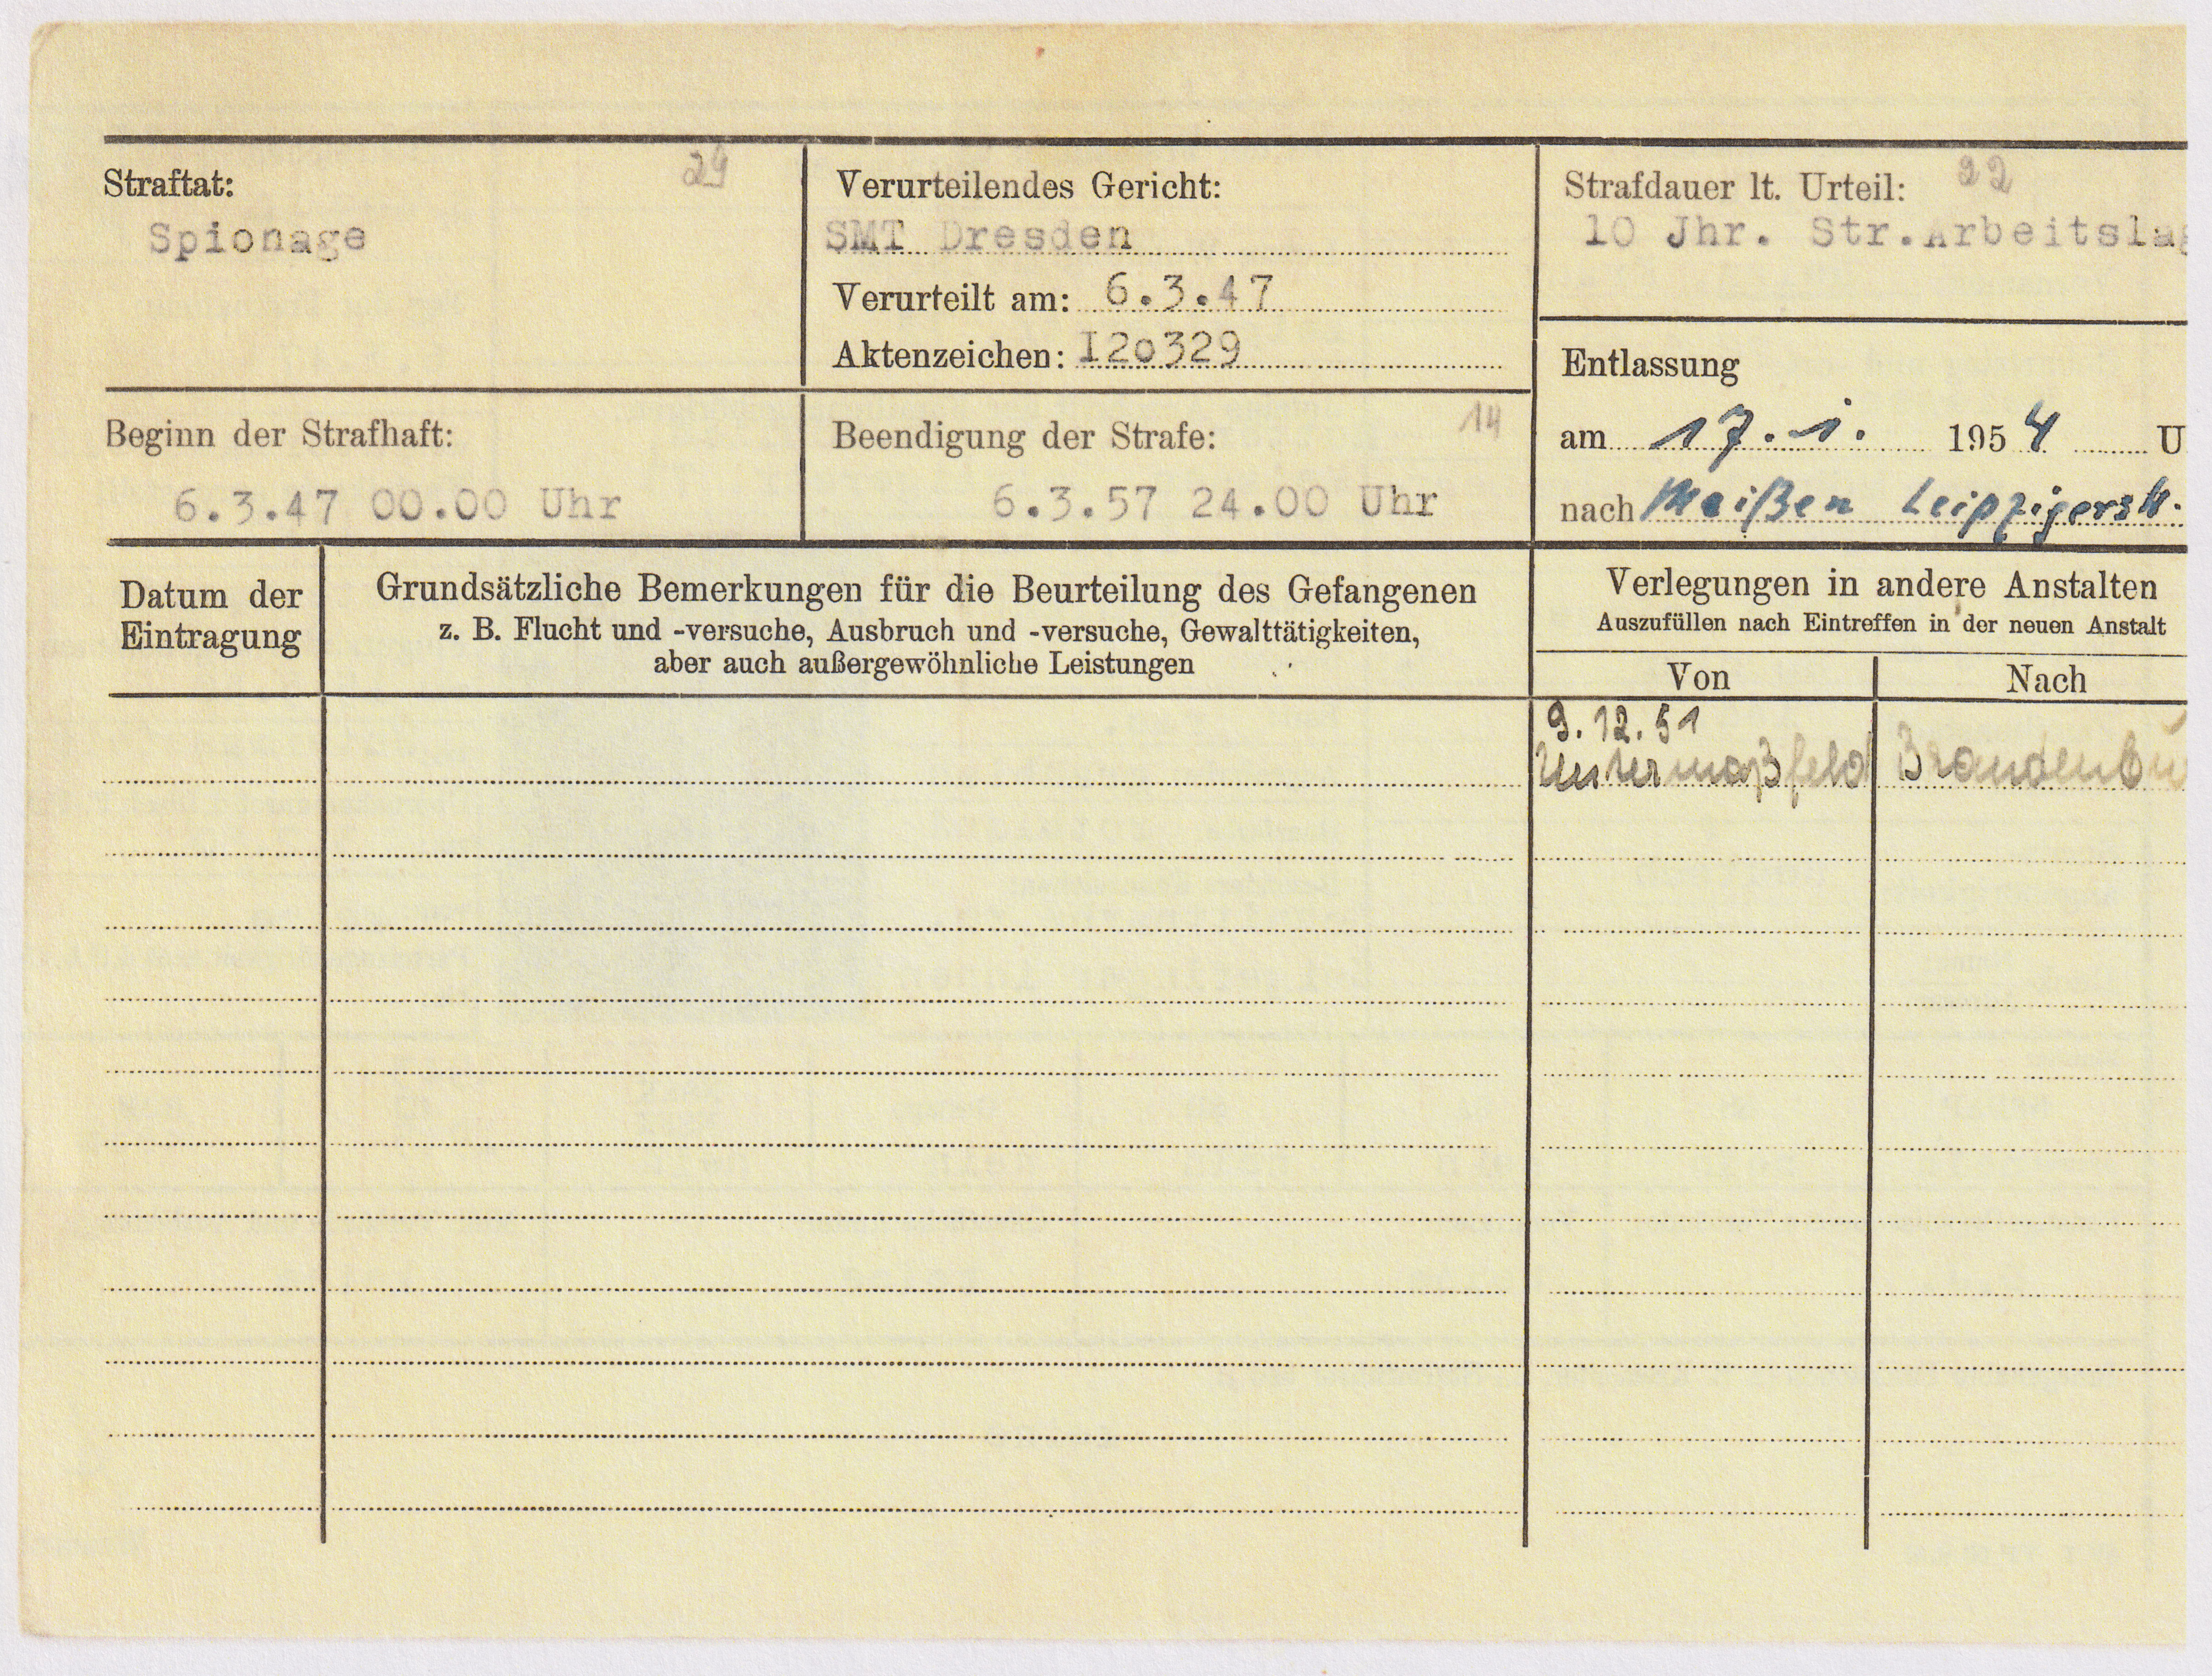 Straftat: 24
Spionage
Verurteilendes Gericht:
SMT Dresden
Verurteilt am: 6.3.47
Aktenzeichen: I2o329
Strafdauer lt. Urteil: 22
10 Jhr. Str.Arbeitslag
Beginn der Strafhaft:
6.3.47 00.00 Uhr
Beendigung der Strafe: 14
6.3.57 24.00 Uhr
Entlassung
am 17.1. 1954 U
nach Meißen Leipzigerstr.
Datum der
Eintragung
Grundsätzliche Bemerkungen für die Beurteilung des Gefangenen
z. B. Flucht und -versuche, Ausbruch und -versuche, Gewalttätigkeiten,
aber auch außergewöhnliche Leistungen
Verlegungen in andere Anstalten
Auszufüllen nach Eintreffen in der neuen Anstalt
Von Nach
9.12.51
Untermaßfeld Brandenbu